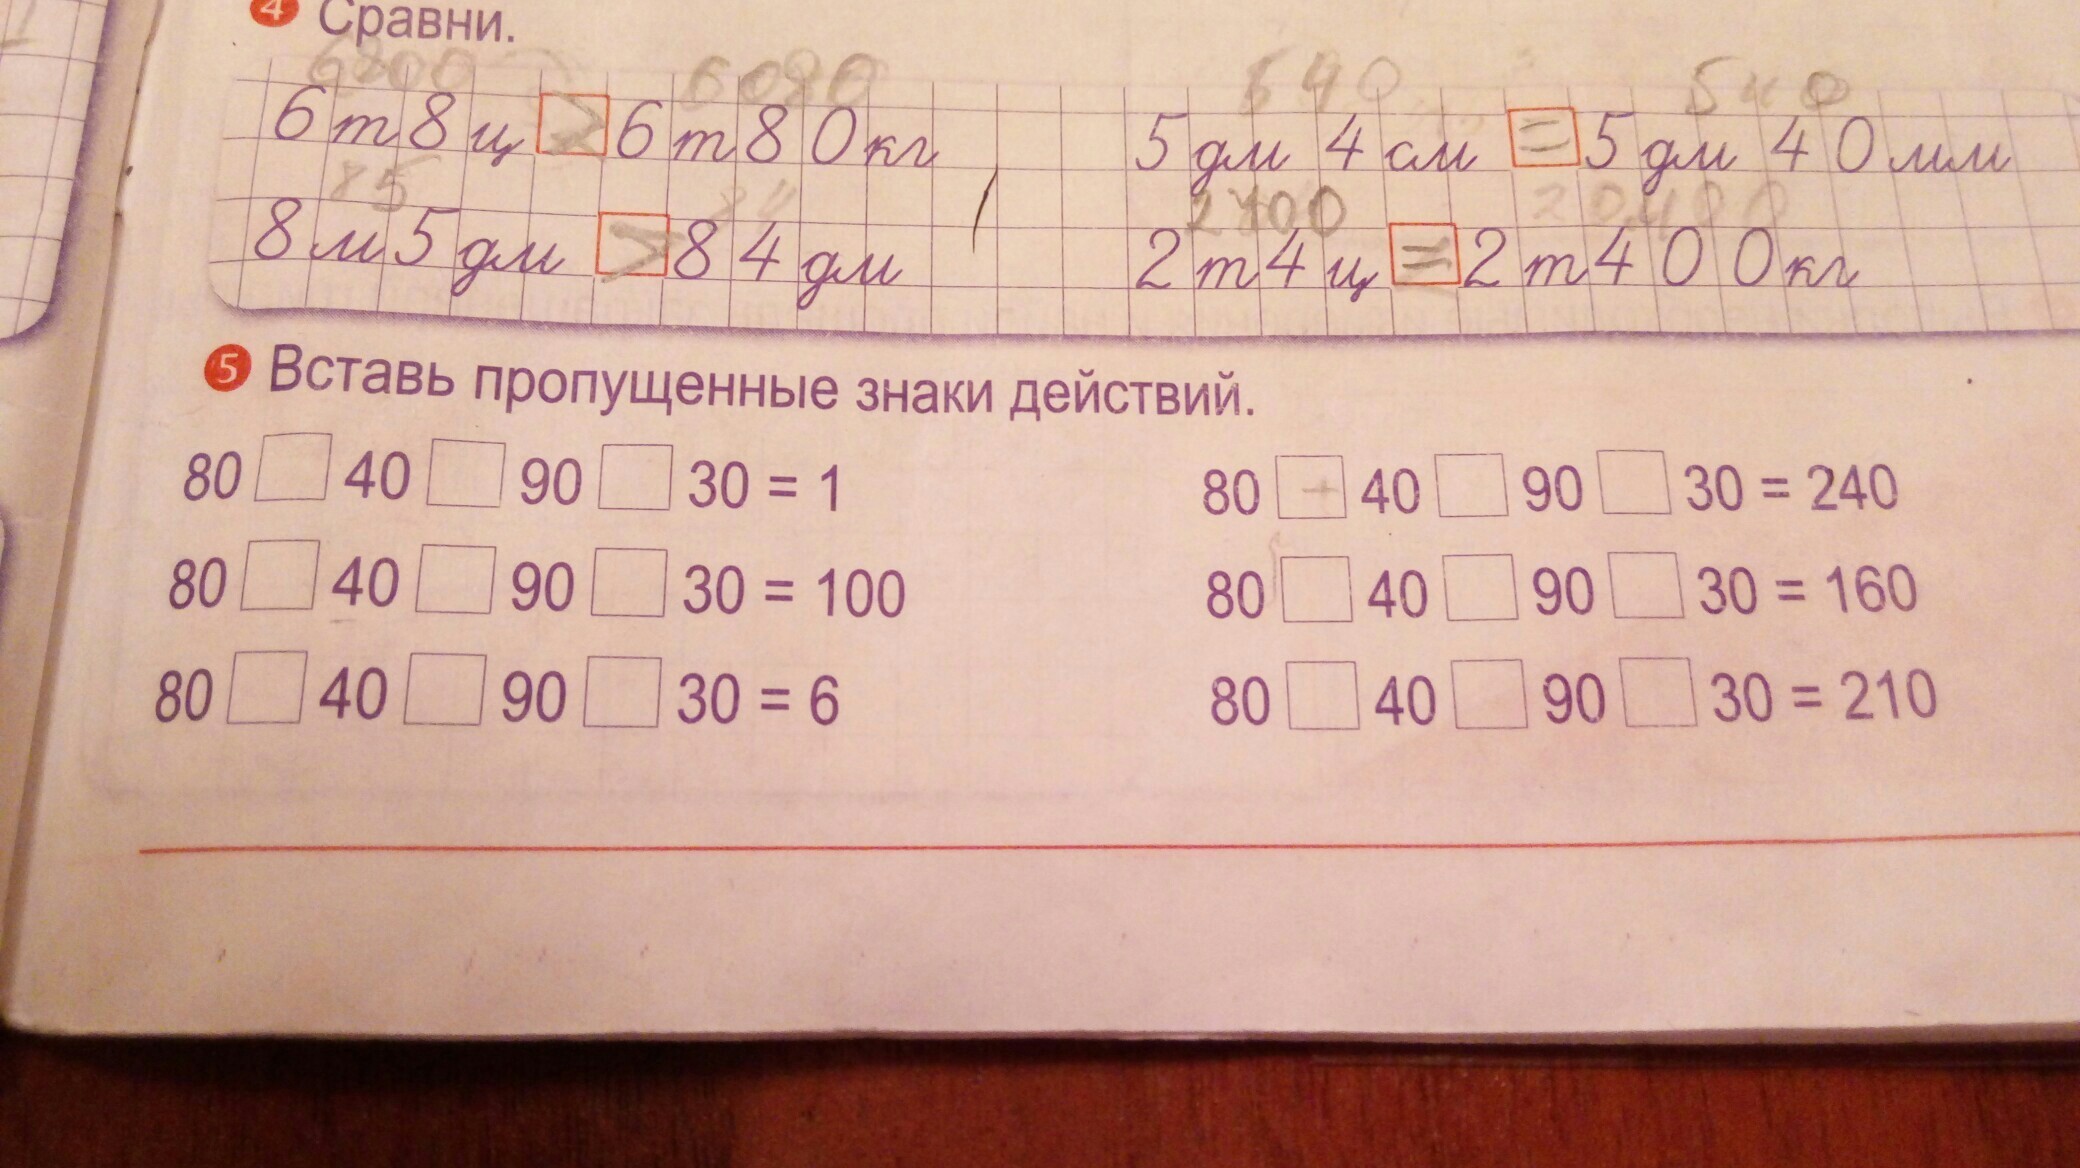 4 Сравни.
6800 6080 540 540
6 т 8 ц > 6 т 8 0 кг 5 дм 4 см = 5 дм 4 0 мм
85 84 2400 20400
8 м 5 дм > 8 4 дм 2 т 4 ц = 2 т 4 0 0 кг
5 Вставь пропущенные знаки действий.
80 □ 40 □ 90 □ 30 = 1 80 + 40 □ 90 □ 30 = 240
80 □ 40 □ 90 □ 30 = 100 80 □ 40 □ 90 □ 30 = 160
80 □ 40 □ 90 □ 30 = 6 80 □ 40 □ 90 □ 30 = 210